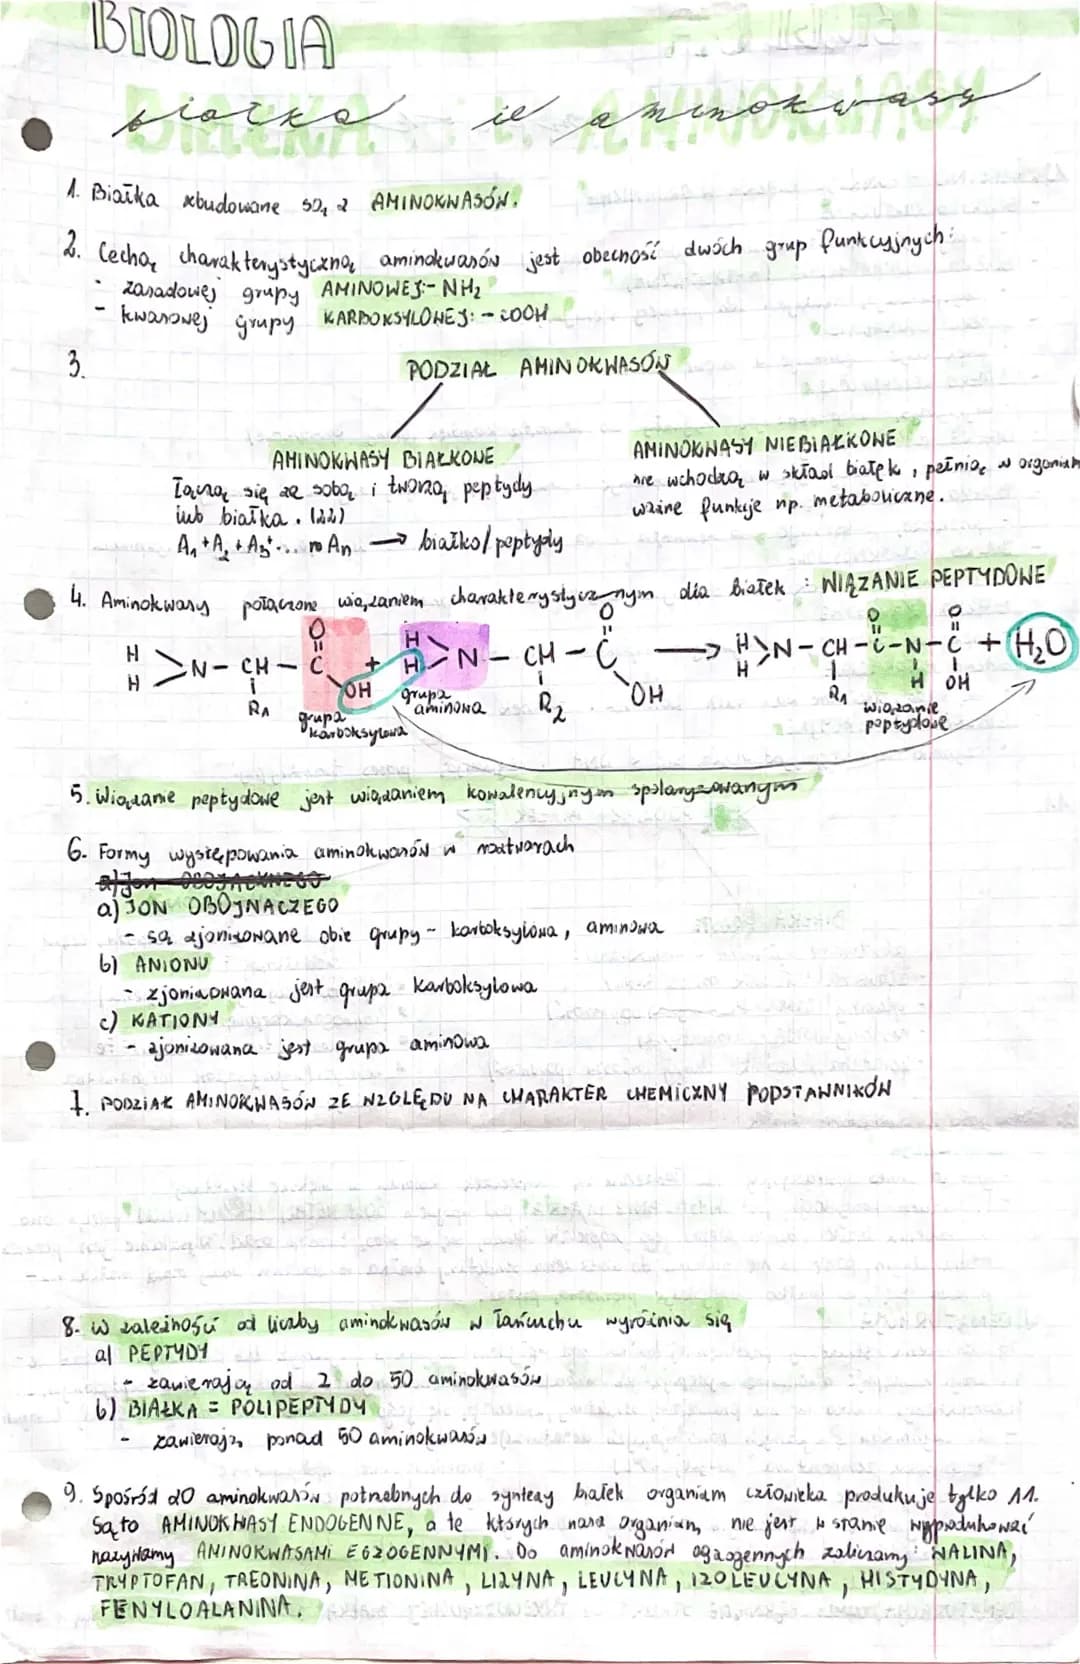 BIOLOGIA
białka i aminokwasy
1. Białka zbudowane są z AMINOKWASÓW.
2. Cechą charakterystyczną aminokwasów jest obecność dwóch grup funkcyjnych:
- zasadowej grupy AMINOWEJ:- NH₂
- kwasowej grupy KARBOKSYLOWEJ: - COOH
3. PODZIAŁ AMINOKWASÓW
AMINOKWASY BIAŁKOWE
Łączą się ze sobą i tworzą peptydy
lub białka. (22)
A₁ + A₂ + A₃ + ... An → białko/peptydy
AMINOKWASY NIEBIAŁKOWE
nie wchodzą w skład białek, pełnią w organizm
ważne funkcje np. metaboliczne.
4. Aminokwasy połączone wiązaniem charakterystycznym dla białek : WIĄZANIE PEPTYDOWE
H H >N - CH - C O OH + H H >N - CH - C O OH → H H >N - CH - C - N - C + H₂O
O O
R₁ R₂ R₁ H OH
grupa karboksylowa
grupa aminowa
wiązanie peptydowe
5. Wiązanie peptydowe jest wiązaniem kowalencyjnym spolaryzowanym
6. Formy występowania aminokwasów w roztworach
a) Jon OBOJACKNEGO
a) JON OBOJNACZEGO
- są zjonizowane obie grupy - karboksylowa, aminowa
b) ANIONU
- zjonizowana jest grupa karboksylowa
c) KATIONY
- zjonizowana jest grupa aminowa
7. PODZIAŁ AMINOKWASÓW ZE WZGLĘDU NA CHARAKTER CHEMICZNY PODSTAWNIKÓW
8. W zależności od liczby aminokwasów w łańcuchu wyróżnia się
a) PEPTYDY
- zawierają od 2 do 50 aminokwasów
b) BIAŁKA = POLIPEPTYDY
- zawierają ponad 50 aminokwasów
9. Spośród 20 aminokwasów potrzebnych do syntezy białek organizm człowieka produkuje tylko 11.
Są to AMINOKWASY ENDOGENNE, a te których nasz organizm nie jest w stanie wyprodukować
nazywamy AMINOKWASAMI EGZOGENNYMI. Do aminokwasów egzogennych zaliczamy: WALINA,
TRYPTOFAN, TREONINA, METIONINA, LIZYNA, LEUCYNA, IZOLEUCYNA, HISTYDYNA,
FENYLOALANINA.